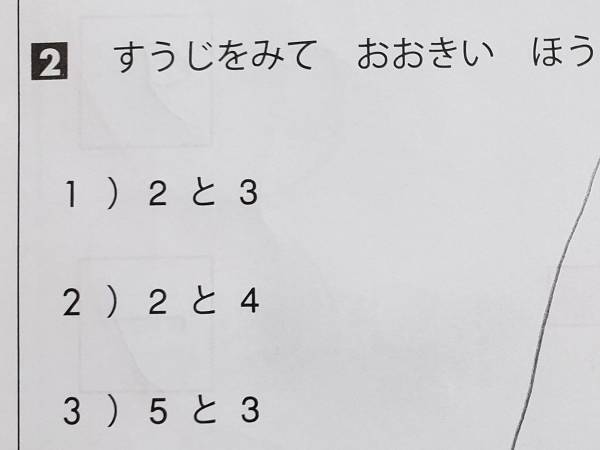 2 すうじをみて おおきい ほう
1 ) 2 と 3
2 ) 2 と 4
3 ) 5 と 3